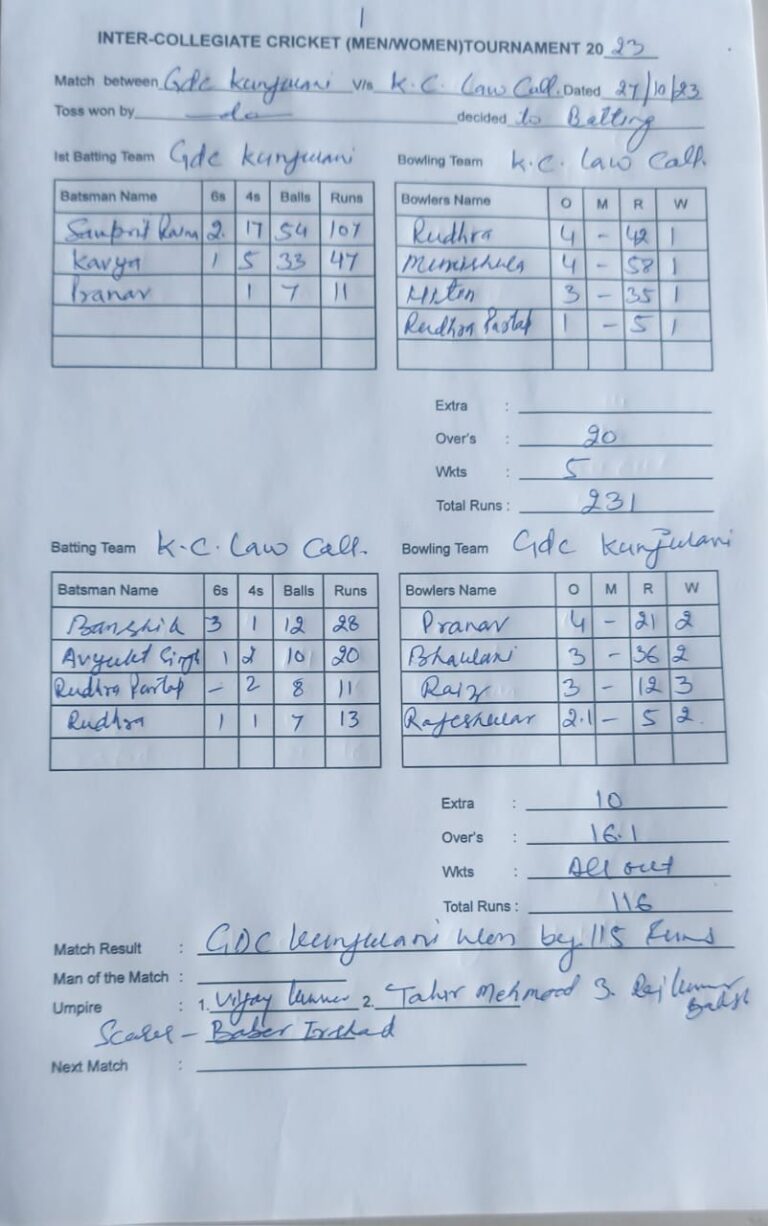 1
INTER-COLLEGIATE CRICKET (MEN/WOMEN)TOURNAMENT 2023
Match between Gdc Kunjwani V/s K.C. Law Coll. Dated 27/10/23
Toss won by —do— decided to Batting
1st Batting Team Gdc Kunjwani Bowling Team K.C. Law Coll.
Batsman Name 6s 4s Balls Runs Bowlers Name O M R W
2. 17 54 107 Rudhra 4 - 42 1
Kavya 1 5 33 47 4 - 58 1
Pranav 1 7 11 3 - 35 1
Rudhra Partap 1 - 5 1
Extra :
Over's : 20
Wkts : 5
Total Runs : 231
Batting Team K.C. Law Coll. Bowling Team Gdc Kunjwani
Batsman Name 6s 4s Balls Runs Bowlers Name O M R W
3 1 12 28 Pranav 4 - 21 2
Avyukt Singh 1 2 10 20 3 - 36 2
Rudhra Partap - 2 8 11 3 - 12 3
Rudhra 1 1 7 13 Rajeshwar 2.1 - 5 2.
Extra : 10
Over's : 16.1
Wkts : All out
Total Runs : 116
Match Result : GDC Kunjwani won by 115 Runs
Man of the Match :
Umpire : 1. Vijay Kumar 2. Tahir Mehmood 3. Raj Kumar
Bakshi
- Baber Irshad
Next Match :